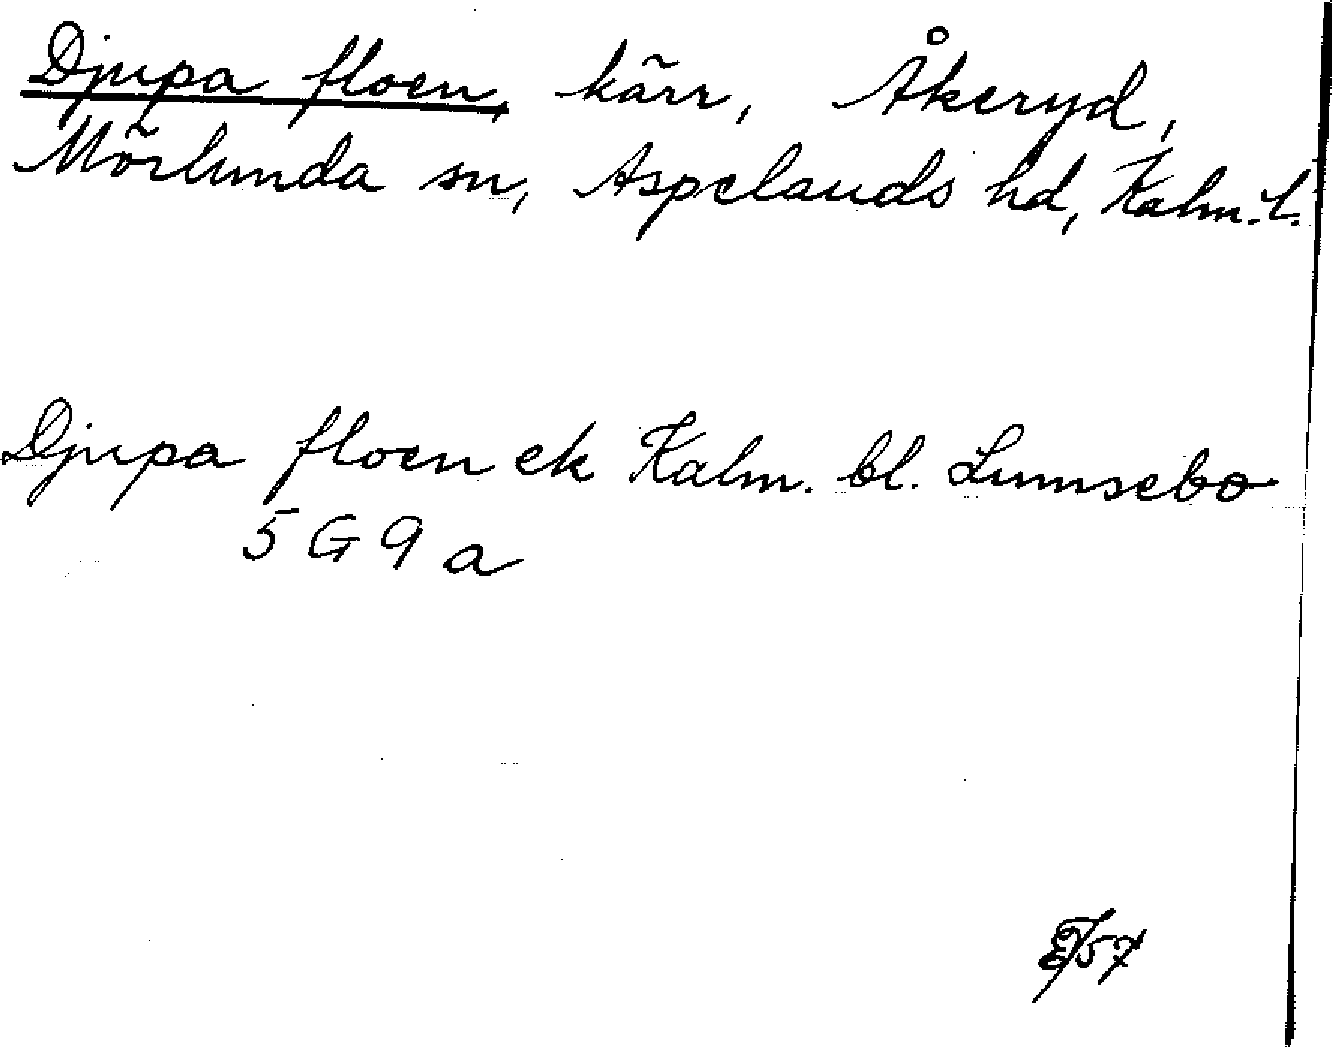 Djupa floen, kärr, Åkeryd,
Mörlunda sn, Aspelands hd, Kalm. l.
Djupa floen ek Kalm. bl. Lumsebo
5 G 9 a